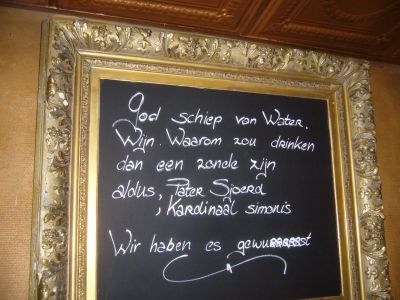 God schiep van Water,
Wijn. Waarom zou drinken
dan een zonde zijn
aldus, Pater Sjoerd
, Kardinaal simonis
Wir haben es gewu